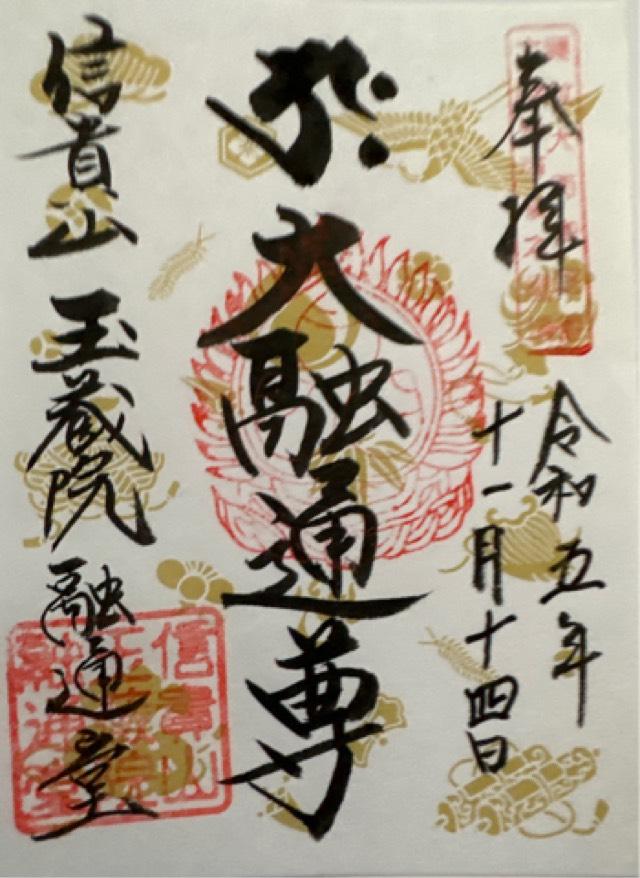 奉拝
令和五年
十一月十四日
大融通尊
信貴山 玉蔵院 融通堂
信貴山
玉蔵院
融通堂